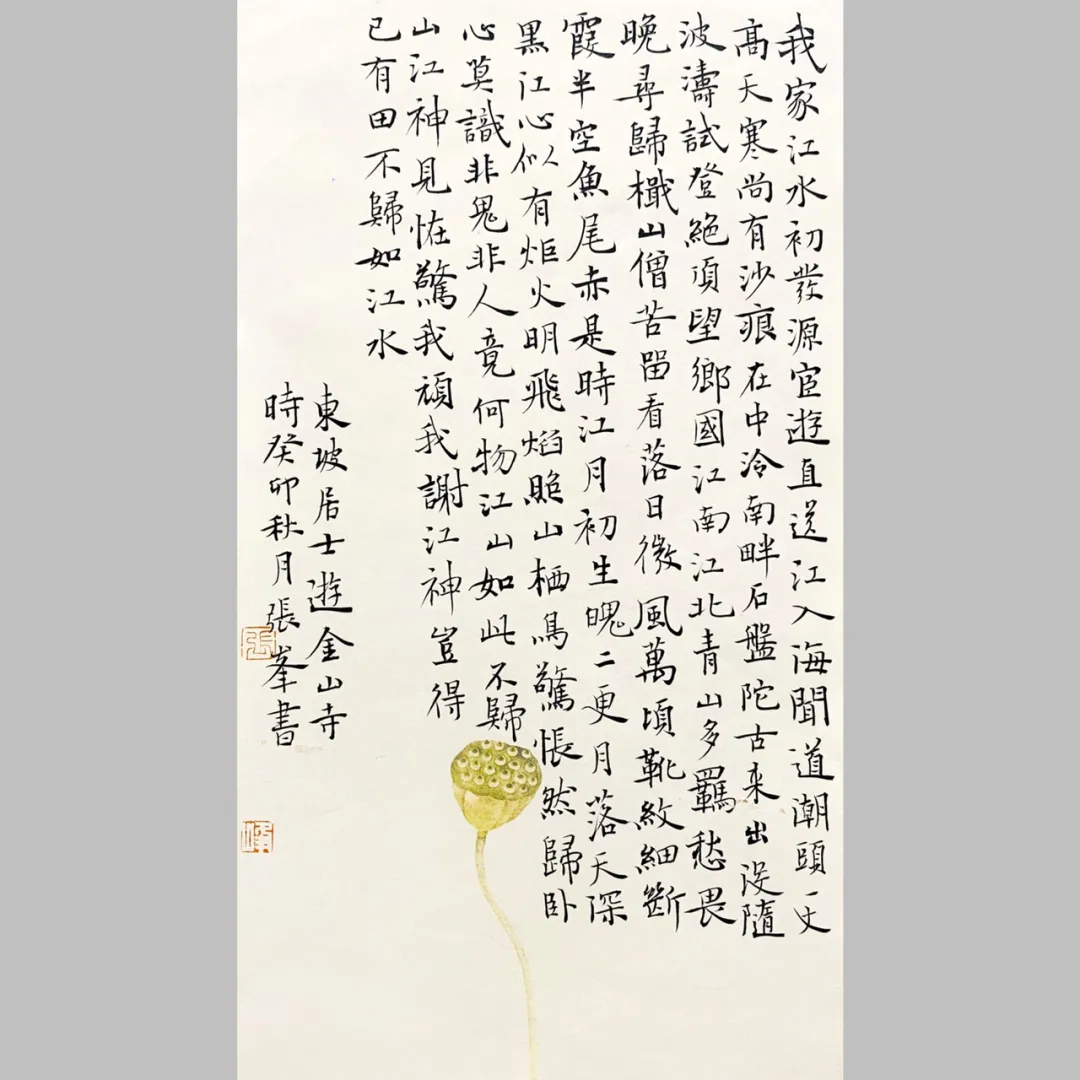 我家江水初發源宦遊直送江入海聞道潮頭一丈
高天寒尚有沙痕在中泠南畔石盤陀古来出没隨
波濤試登絶頂望鄉國江南江北青山多羈愁畏
晚尋歸檝山僧苦留看落日微風萬頃靴紋細斷
霞半空魚尾赤是時江月初生魄二更月落天深
黑江心似有炬火明飛焰照山栖鳥驚悵然歸卧
心莫識非鬼非人竟何物江山如此不歸
山江神見恠驚我頑我謝江神豈得
已有田不歸如江水
東坡居士遊金山寺
時癸卯秋月張峯書
張